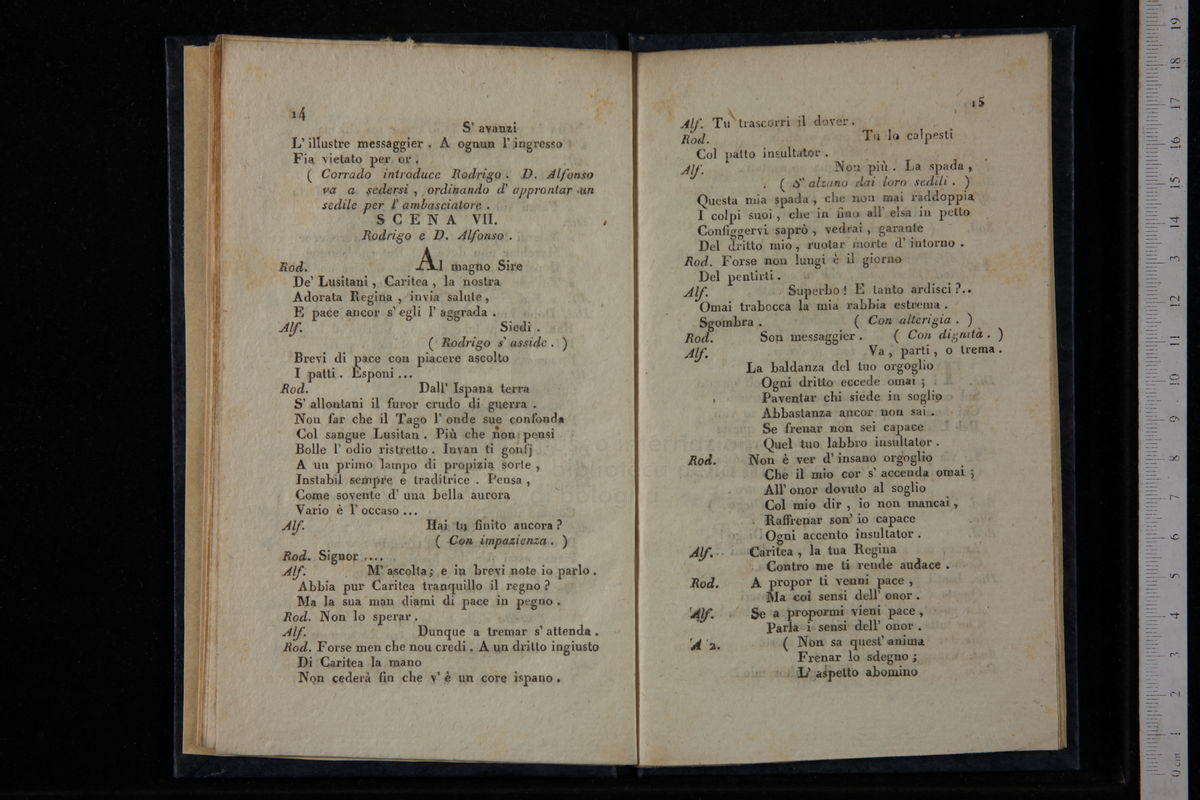 14
S' avanzi
L' illustre messaggier . A ognun l' ingresso
Fia vietato per or .
( Corrado introduce Rodrigo . D. Alfonso
va a sedersi , ordinando d' approntar un
sedile per l' ambasciatore .
SCENA VII.
Rodrigo e D. Alfonso .
Rod. Al magno Sire
De' Lusitani , Caritea , la nostra
Adorata Regina , invia salute ,
E pace ancor s' egli l' aggrada .
Alf. Siedi .
( Rodrigo s' asside . )
Brevi di pace con piacere ascolto
I patti . Esponi ...
Rod. Dall' Ispana terra
S' allontani il furor crudo di guerra .
Non far che il Tago l' onde sue confonda
Col sangue Lusitan . Più che non pensi
Bolle l' odio ristretto . Invan ti gonfj
A un primo lampo di propizia sorte ,
Instabil sempre e traditrice . Pensa ,
Come sovente d' una bella aurora
Vario è l' occaso ...
Alf. Hai tu finito ancora ?
( Con impazienza . )
Rod. Signor ....
Alf. M' ascolta ; e in brevi note io parlo .
Abbia pur Caritea tranquillo il regno ?
Ma la sua man diami di pace in pegno .
Rod. Non lo sperar .
Alf. Dunque a tremar s' attenda .
Rod. Forse men che nou credi . A un dritto ingiusto
Di Caritea la mano
Non cederà fin che v' è un core ispano .
15
Alf. Tu trascorri il dover .
Rod. Tu lo calpesti
Col patto insultator .
Alf. Non più . La spada ,
( S' alzano dai loro sedili . )
Questa mia spada , che non mai raddoppia
I colpi suoi , che in fino all' elsa in petto
Configgervi saprò , vedrai , garante
Del dritto mio , ruotar morte d' intorno .
Rod. Forse non lungi è il giorno
Del pentirti .
Alf. Superbo ! E tanto ardisci ?..
Omai trabocca la mia rabbia estrema .
Sgombra . ( Con alterigia . )
Rod. Son messaggier . ( Con dignità . )
Alf. Va , parti , o trema .
La baldanza del tuo orgoglio
Ogni dritto eccede omai ;
Paventar chi siede in soglio
Abbastanza ancor non sai .
Se frenar non sei capace
Quel tuo labbro insultator .
Rod. Non è ver d' insano orgoglio
Che il mio cor s' accenda omai ;
All' onor dovuto al soglio
Col mio dir , io non mancai ,
Raffrenar son' io capace
Ogni accento insultator .
Alf. Caritea , la tua Regina
Contro me ti rende audace .
Rod. A propor ti venni pace ,
Ma coi sensi dell' onor .
Alf. Se a propormi vieni pace ,
Parla i sensi dell' onor .
A 2. ( Non sa quest' anima
Frenar lo sdegno ;
L' aspetto abomino